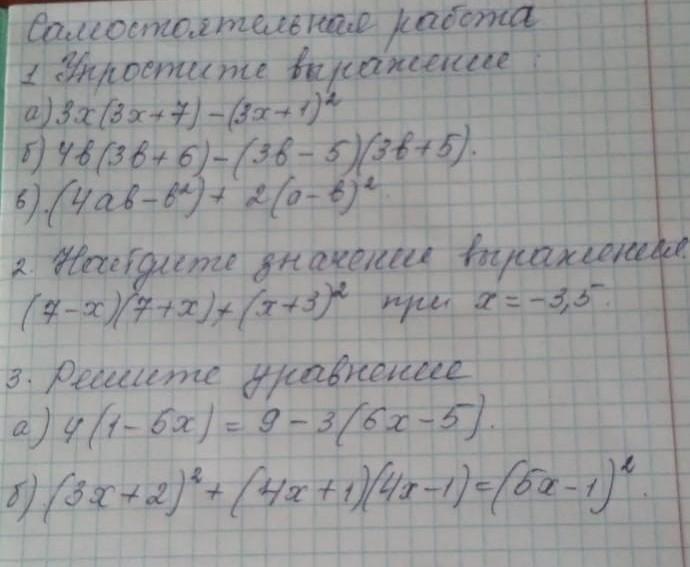 Самостоятельная работа
1 Упростите выражение:
а) 3x(3x+7)-(3x+1)²
б) 4в(3в+6)-(3в-5)(3в+5).
в) (4ав-в²)+ 2(а-в)²
2. Найдите значение выражения.
(7-x)(7+x)+(x+3)² при x=-3,5.
3. Решите уравнение
а) 4(1-5x)=9-3(6x-5).
б) (3x+2)²+(4x+1)(4x-1)=(5x-1)².